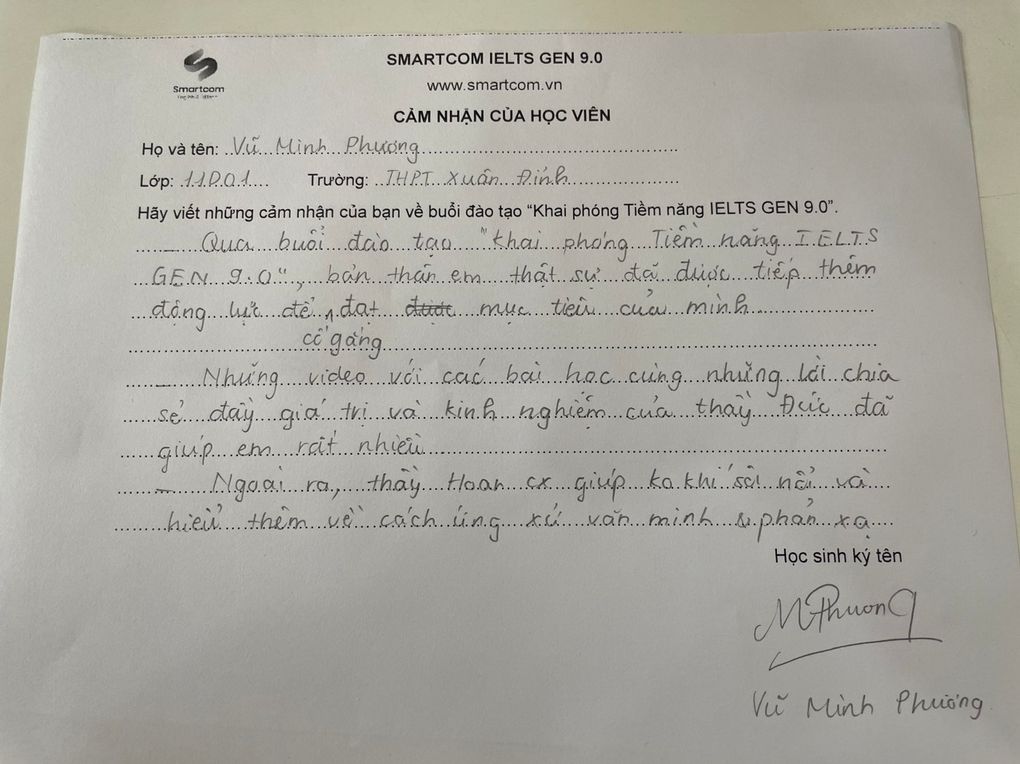 SMARTCOM IELTS GEN 9.0
Smartcom
www.smartcom.vn
CẢM NHẬN CỦA HỌC VIÊN
Họ và tên: Vũ Minh Phương
Lớp: 11D01 Trường: THPT Xuân Đỉnh
Hãy viết những cảm nhận của bạn về buổi đào tạo “Khai phóng Tiềm năng IELTS GEN 9.0”.
– Qua buổi đào tạo "Khai phóng Tiềm năng IELTS
GEN 9.0", bản thân em thật sự đã được tiếp thêm
động lực để đạt được mục tiêu của mình
cố gắng
– Những video với các bài học cùng những lời chia
sẻ đầy giá trị và kinh nghiệm của thầy Đức đã
giúp em rất nhiều
– Ngoài ra, thầy Hoan cx giúp ko khí sôi nổi và
hiểu thêm về cách ứng xử văn minh & phản xạ
Học sinh ký tên
MPhuong
Vũ Minh Phương